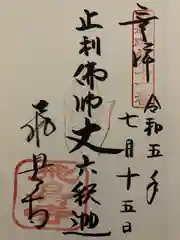 奉拝
令和五年
七月十五日
止利佛師丈六釈迦
飛鳥寺